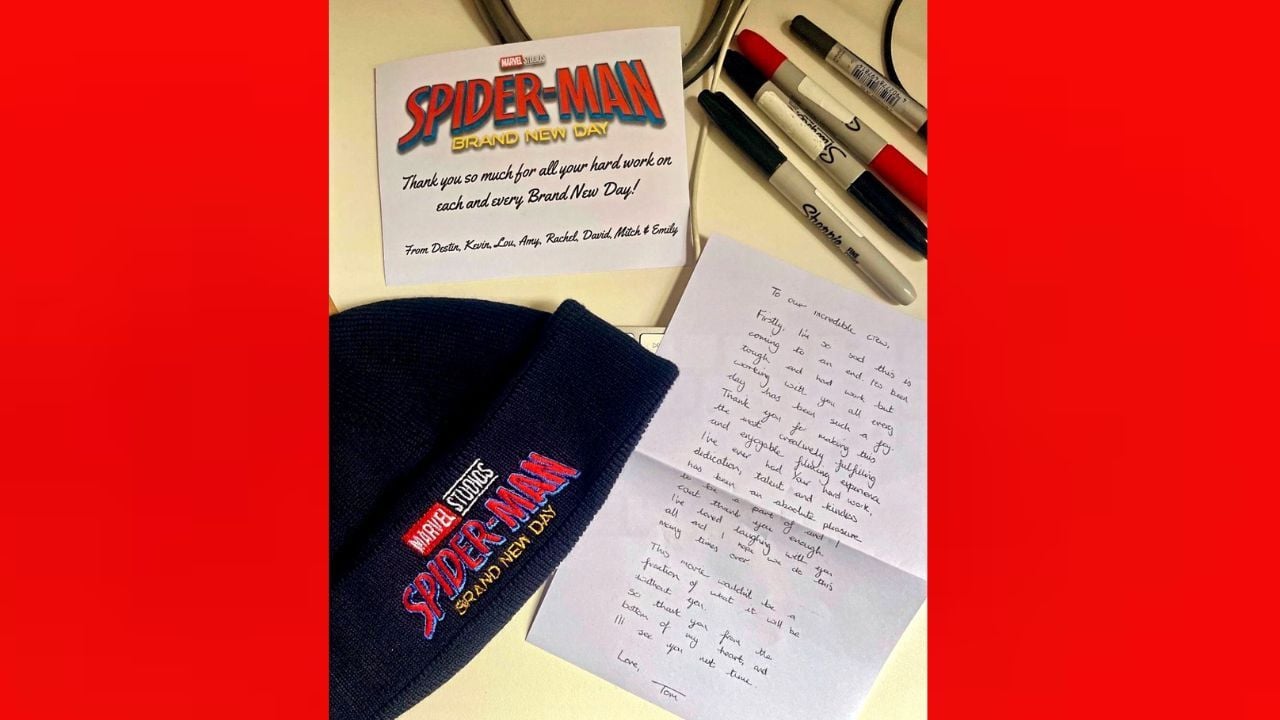 MARVEL STUDIOS
SPIDER-MAN
BRAND NEW DAY
Thank you so much for all your hard work on
each and every Brand New Day!
From Destin, Kevin, Lou, Amy, Rachel, David, Mitch & Emily
Sharpie
Sharpie FINE
MARVEL STUDIOS
SPIDER-MAN
BRAND NEW DAY
To our incredible crew,
Firstly, I'm so sad this is
coming to an end. It's been
tough and hard work but
working with you all every
day has been such a joy.
Thank you for making this
the most creatively fulfilling
and enjoyable filming experience
I've ever had. Your hard work,
dedication, talent and kindess
has been an absolute pleasure
to be a part of and I
cant thank you enough.
I've loved laughing with you
all and I hope we do this
many times over
This movie wouldn't be a
fraction of what it will be
without you.
so thank you from the
bottom of my heart, and
I'll see you next time.
Love,
Tom